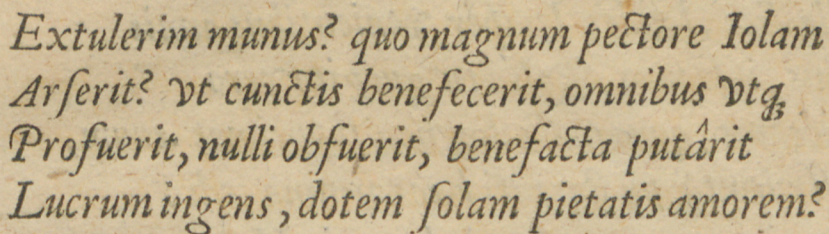 Extulerim munus? quo magnum pectore Iolam
Arſerit? vt cunctis benefecerit, omnibus vtq;
Profuerit, nulli obfuerit, benefacta putârit
Lucrum ingens, dotem ſolam pietatis amorem?